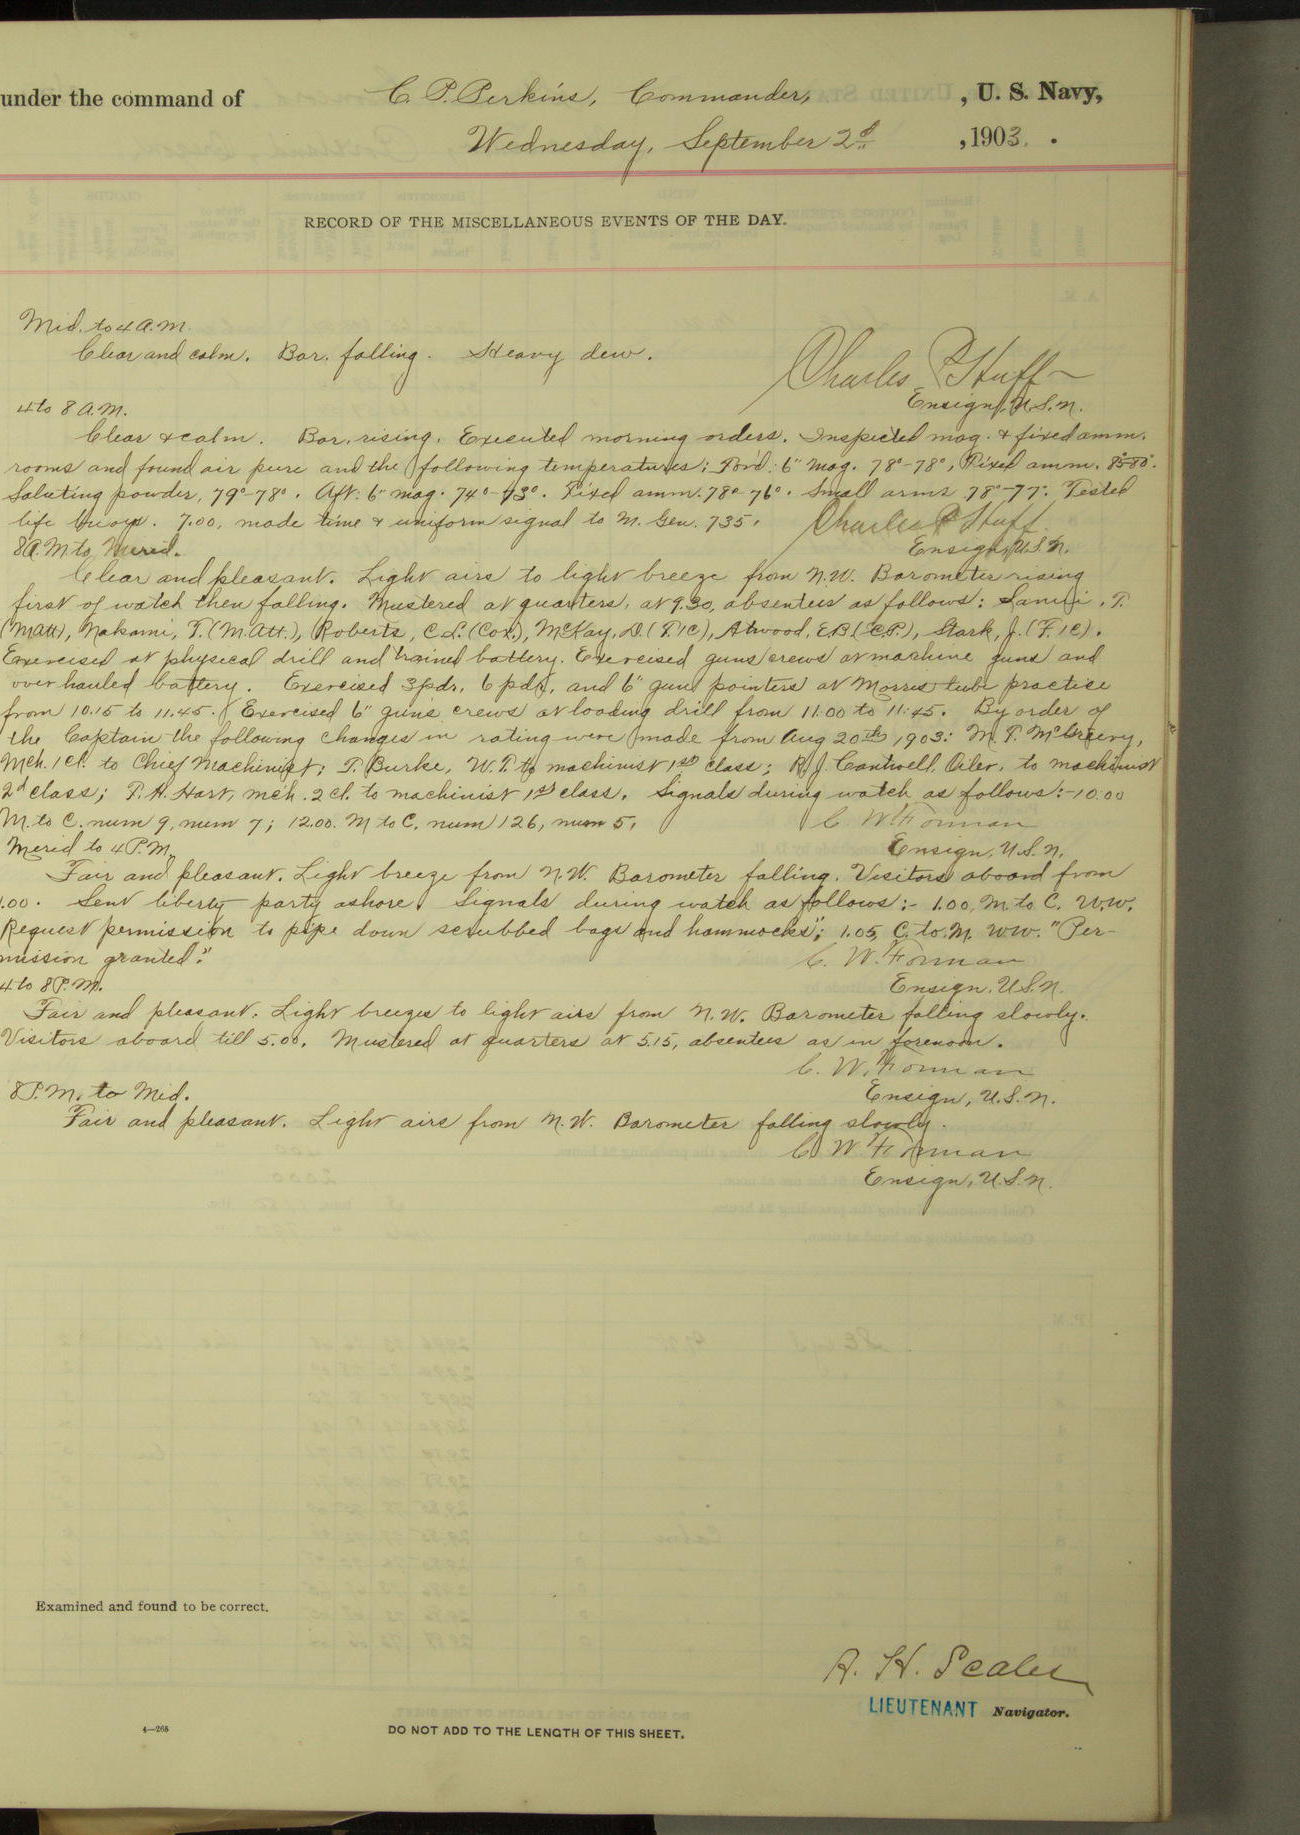 under the command of C. P. Perkins, Commander, , U. S. Navy,
Wednesday, September 2d , 1903.
RECORD OF THE MISCELLANEOUS EVENTS OF THE DAY.
Mid. to 4 A.M.
Clear and calm. Bar. falling. Heavy dew.
Charles P Huff
Ensign, U.S.N.
4 to 8 A.M.
Clear & calm. Bar. rising. Executed morning orders. Inspected mag. & fixed amm.
rooms and found air pure and the following temperatures: Ford: 6" mag. 78°-78°, Fixed amm. 85-80°.
Saluting powder, 79°-78°. Aft: 6" mag. 74°-73°. Fixed amm. 78°-76°. Small arms 78°-77°. Tested
life buoys. 7.00, made time & uniform signal to M. Gen. 735.
Charles P Huff.
Ensign, U.S.N.
8 A.M to Merid.
Clear and pleasant. Light airs to light breeze from N.W. Barometer rising
first of watch then falling. Mustered at quarters, at 9.30, absentees as follows: T.
(M att), Nakami, T. (M. Att.), Roberts, C L. (Cox.), McKay, D. (F.1C), Atwood, E.B. (C.P.), Stark, J. (F.1C).
Exercised at physical drill and trained battery. Exercised guns crews at machine guns and
overhauled battery. Exercised 3 pdr, 6 pdr, and 6" gun pointers at Morris tube practice
from 10.15 to 11.45. Exercised 6" guns crews at loading drill from 11.00 to 11.45. By order of
the Captain the following changes in rating were made from Aug 20th, 1903: M. T. McCreery,
Mch. 1 Cl. to Chief Machinist; T. Burke, W.T. to machinist 1st class; R.J. Cantwell, Oiler, to machinist
2d class; P. H. Hart, mch. 2 cl. to machinist 1st class. Signals during watch as follows:- 10.00
M to C. num 9, num 7; 12.00. M to C. num 126, num 5.
C. W. Forman
Ensign, U.S.N.
Merid to 4 P.M.
Fair and pleasant. Light breeze from N.W. Barometer falling. Visitors aboard from
1.00. Sent liberty party ashore. Signals during watch as follows:- 1.00, M. to C. W.W.
Request permission to pipe down scrubbed bags and hammocks"; 1.05, C. to M. W.W. "Per-
mission granted."
C. W. Forman
Ensign, U.S.N.
4 to 8 P.M.
Fair and pleasant. Light breezes to light airs from N.W. Barometer falling slowly.
Visitors aboard till 5.00. Mustered at quarters at 5.15, absentees as in forenoon.
C. W. Forman
Ensign, U.S.N.
8 P.M. to Mid.
Fair and pleasant. Light airs from N.W. Barometer falling slowly.
C W Forman
Ensign, U.S.N.
Examined and found to be correct.
A. H. Scales
LIEUTENANT Navigator.
4—265
DO NOT ADD TO THE LENGTH OF THIS SHEET.